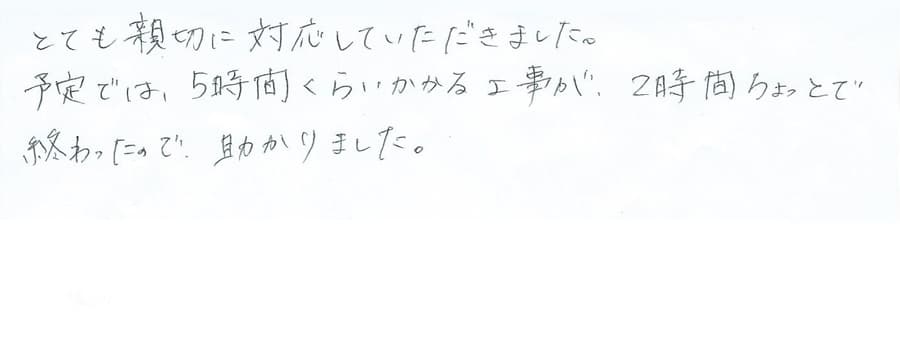 とても親切に対応していただきました。
予定では、5時間くらいかかる工事が、2時間ちょっとで
終わったので、助かりました。